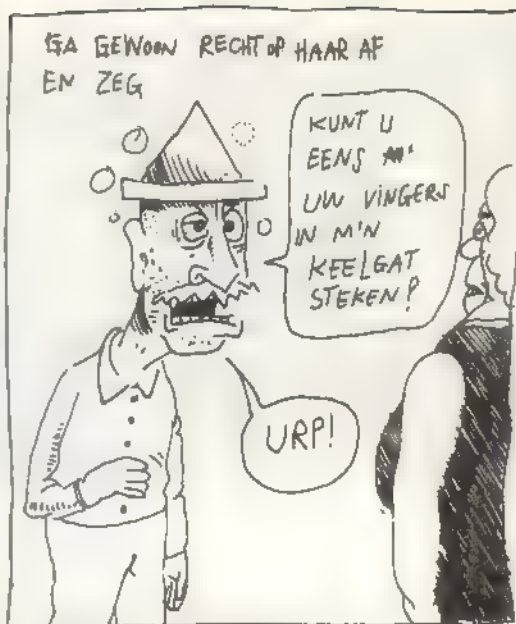 GA GEWOON RECHT OP HAAR AF
EN ZEG
KUNT U
EENS
UW VINGERS
IN M'N
KEELGAT
STEKEN?
URP!